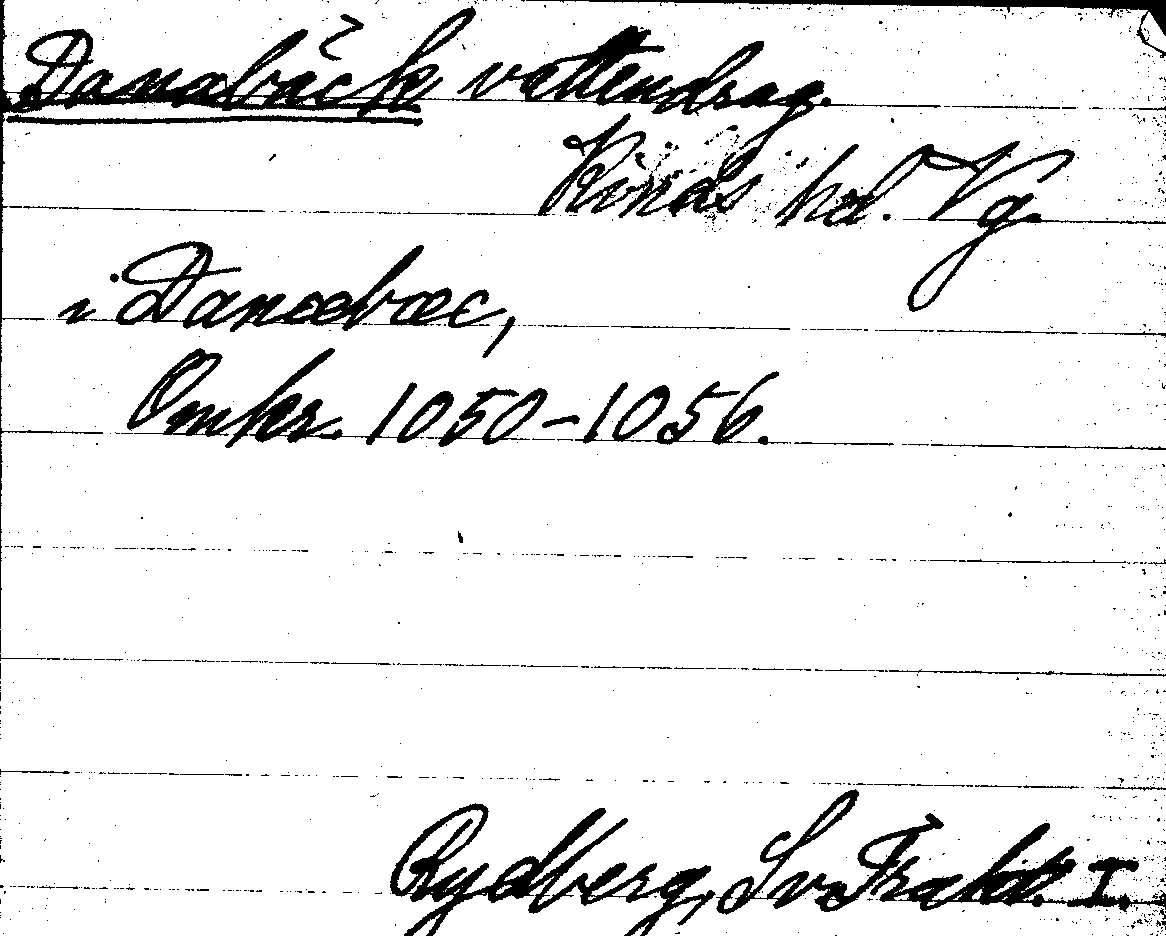 Danabäck vattendrag.
Kinds hd. Vg.
i Danæbæc,
Omkr. 1050-1056.
Rydberg, Sv. Trakt. I.